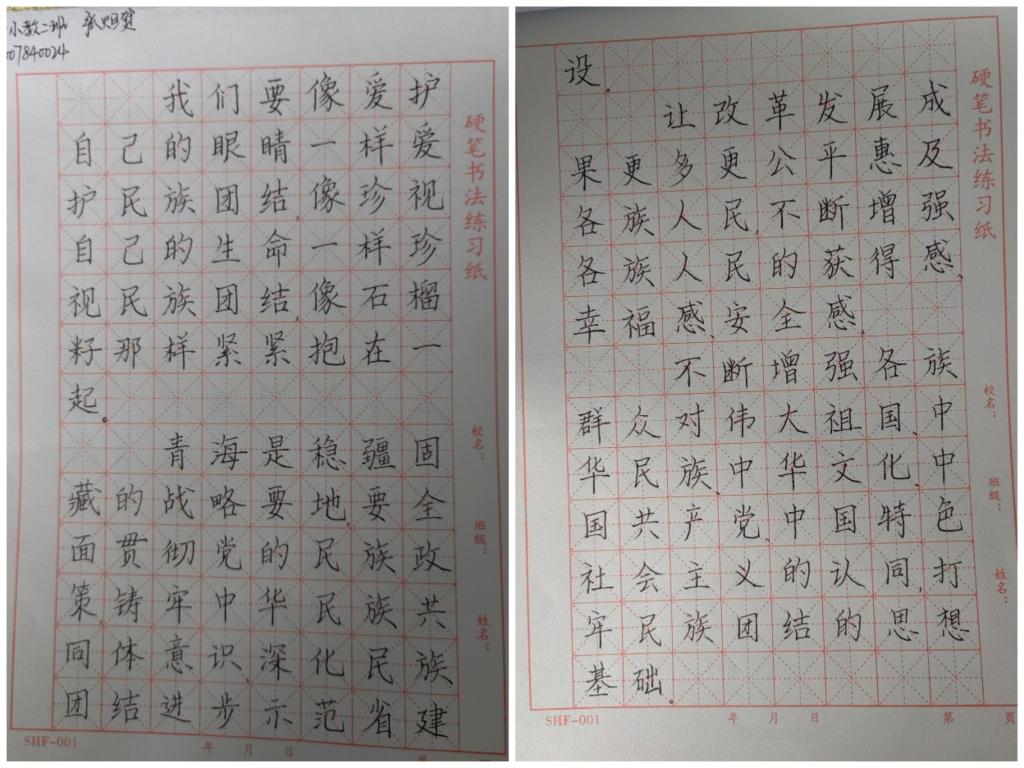 小教二班
07840024
我们要像爱护
自己的眼睛一样爱
护民族团结,像珍视
自己的生命一样珍
视民族团结,像石榴
籽那样紧紧抱在一
起。
青海是稳疆固
藏的战略要地,要全
面贯彻党的民族政
策,铸牢中华民族共
同体意识,深化民族
团结进步示范省建
硬笔书法练习纸
校名:
班级:
姓名:
SHF-001
年 月 日
第
设。
让改革发展成
果更多更公平惠及
各族人民,不断增强
各族人民的获得感、
幸福感、安全感。
不断增强各族
群众对伟大祖国、中
华民族、中华文化、中
国共产党、中国特色
社会主义的认同,打
牢民族团结的思想
基础。
硬笔书法练习纸
校名:
班级:
姓名:
SHF-001
年 月 日
第 页